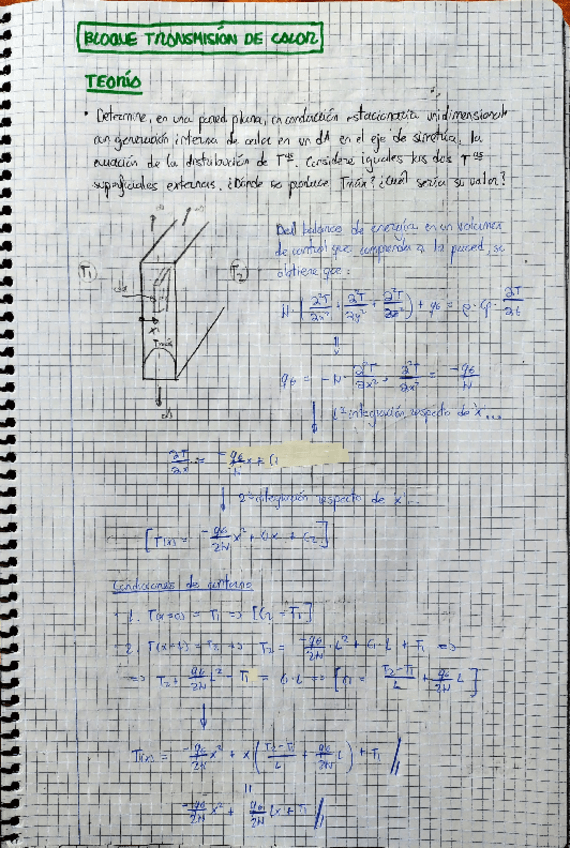 BLOQUE TRANSMISIÓN DE CALOR
TEORÍA
· Determine, en una pared plana, en conducción estacionaria unidimensional
con generación interna de calor en un dA en el eje de simetría, la
ecuación de la distribución de Tªs. Considere iguales las dos Tªs
superficiales externas. ¿Dónde se produce Tmáx? ¿Cuál sería su valor?
Del balance de energía en un volumen
de control que comprenda a la pared, se
obtiene que:
T1
T2
dx
x
Tmáx
K·(∂²T/∂x² + ∂²T/∂y² + ∂²T/∂z²) + qG = ρ·Cp·∂T/∂t
⇓
qG = -K·∂²T/∂x²; ∂²T/∂x² = -qG/K
↓ 1ª integración respecto de 'x'...
∂T/∂x = -qG/K x + C1
↓ 2ª integración respecto de 'x'...
[T(x) = -qG/2K x² + C1x + C2]
Condiciones de contorno
- 1. T(x=0) = T1 => [C2 = T1]
- 2. T(x=L) = T2 => T2 = -qG/2K · L² + C1·L + T1 =>
=> T2 + qG/2K L² - T1 = C1·L => [C1 = (T2-T1)/L + qG/2K L]
↓
T(x) = -qG/2K x² + x((T2-T1)/L + qG/2K L) + T1 //
=
-qG/2K x² + qG/2K Lx + T1 //